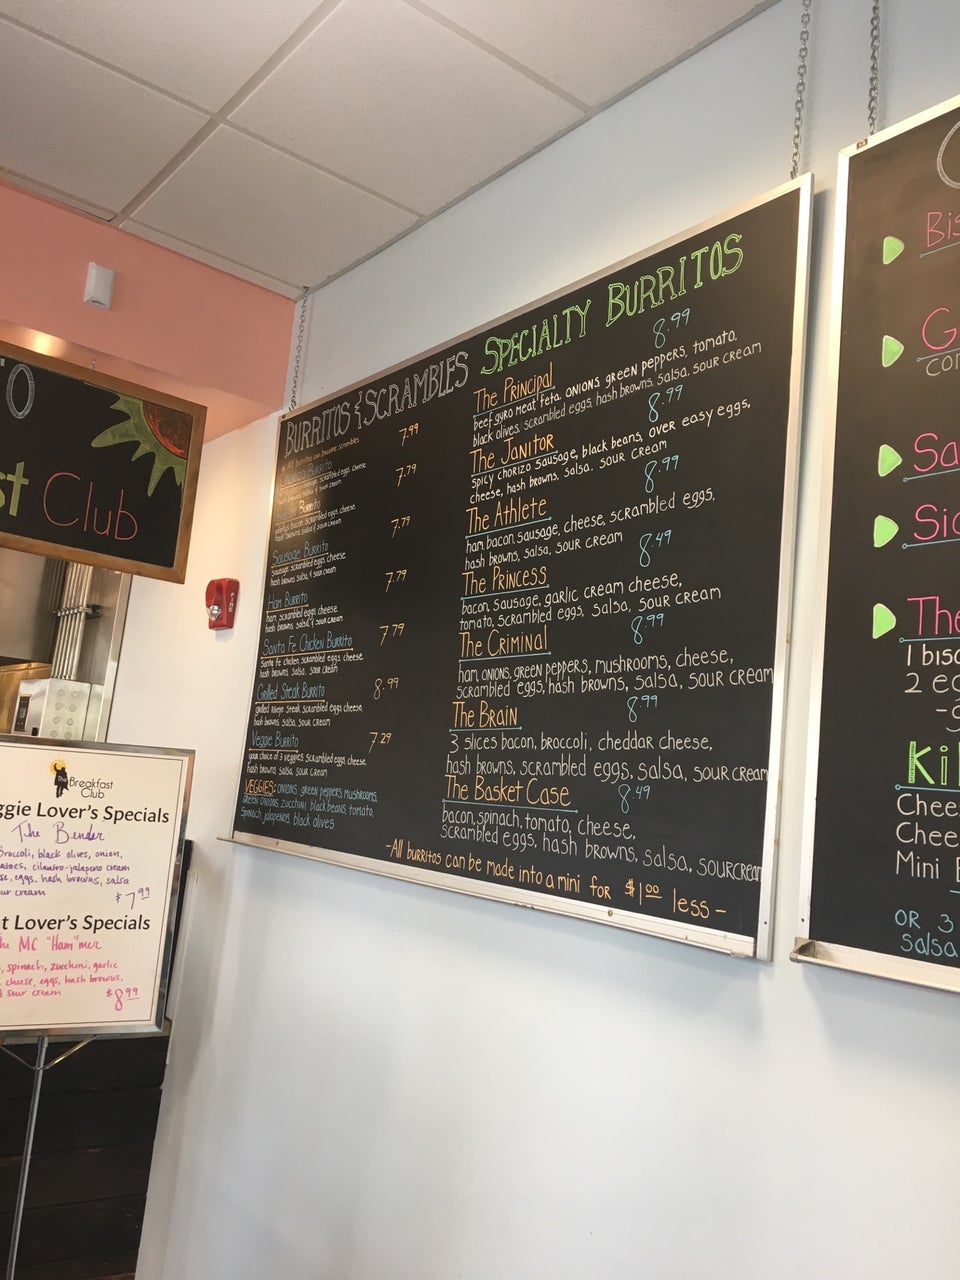 O
st Club
FIRE
BURRITOS & SCRAMBLES
* All burritos can become scrambles
7.99
Chorizo Burrito
chorizo sausage, scrambled eggs, cheese,
hash browns, salsa & sour cream
7.79
Burrito
bacon, scrambled eggs, cheese,
hash browns, salsa & sour cream
7.79
Sausage Burrito
Sausage, scrambled eggs, cheese,
hash browns, salsa, & sour cream
7.79
Ham Burrito
ham, scrambled eggs, cheese,
hash browns, salsa, & sour cream
7.79
Santa Fe Chicken Burrito
Santa Fe chicken, scrambled eggs, cheese,
hash browns, salsa, sour cream
8.99
Grilled Steak Burrito
grilled ribeye steak, scrambled eggs, cheese,
hash browns, salsa, sour cream
7.29
Veggie Burrito
your choice of 3 veggies, scrambled eggs, cheese,
hash browns, salsa, sour cream
VEGGIES: onions, green peppers, mushrooms,
green onions, zucchini, black beans, tomato,
Spinach, jalapeños, black olives
SPECIALTY BURRITOS
8.99
The Principal
beef gyro meat, feta, onions, green peppers, tomato,
black olives, scrambled eggs, hash browns, salsa, sour cream
8.99
The Janitor
spicy chorizo sausage, black beans, over easy eggs,
cheese, hash browns, salsa, sour cream
8.99
The Athlete
ham, bacon, sausage, cheese, scrambled eggs,
hash browns, salsa, sour cream
8.49
The Princess
bacon, sausage, garlic cream cheese,
tomato, scrambled eggs, salsa, sour cream
8.99
The Criminal
ham, onions, green peppers, mushrooms, cheese,
scrambled eggs, hash browns, salsa, sour cream
8.99
The Brain
3 slices bacon, broccoli, cheddar cheese,
hash browns, scrambled eggs, salsa, sour cream
8.49
The Basket Case
bacon, spinach, tomato, cheese,
scrambled eggs, hash browns, salsa, sour cream
-All burritos can be made into a mini for $1.00 less-
Bis
G
con
Sa
Sid
The
1 bisc
2 eg
Ki
Chee
Chee
Mini
OR 3
Salsa
The Breakfast
Club
ggie Lover's Specials
The Bender
Broccoli, black olives, onion,
matoes, cilantro-jalapeno cream
se, eggs, hash browns, salsa
ur cream
$7.99
t Lover's Specials
he MC "Ham"mer
, spinach, zucchini, garlic
cheese, eggs, hash browns,
d sour cream
$8.99